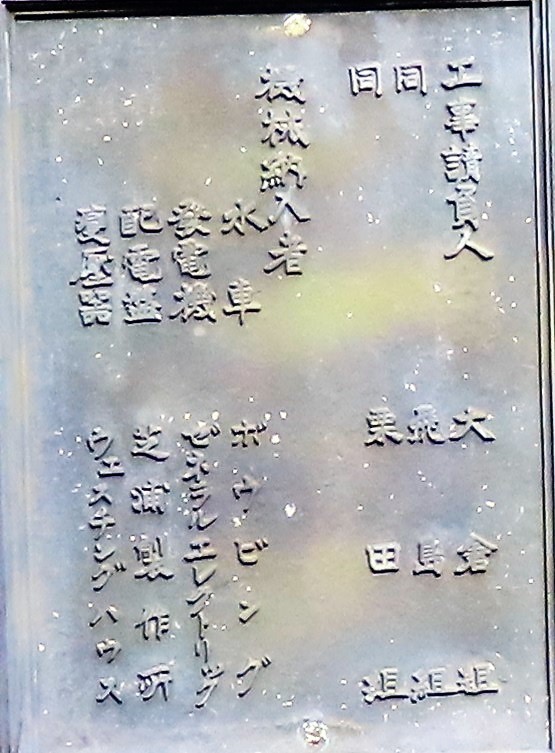 工事請負人 大倉組
同 飛島組
同 栗田組
機械納入者
水車 ボウビング
發電機 ゼネラルエレクトリック
配電盤 芝浦製作所
變壓器 ウエスチングハウス